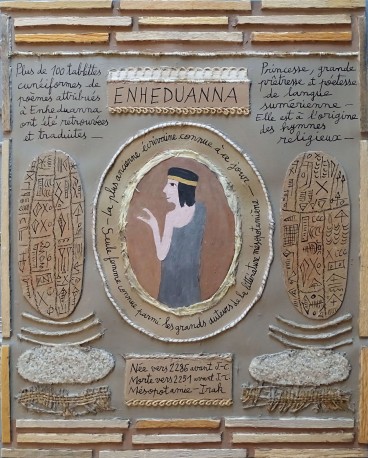 Plus de 100 tablettes
cunéiformes de
poèmes attribués
à Enheduanna
ont été retrouvées
et traduites —
ENHEDUANNA
Princesse, grande
prêtresse et poétesse
de langue
sumérienne —
Elle est à l'origine
des hymnes
religieux —
La plus ancienne écrivaine connue à ce jour —
Seule femme connue parmi les grands auteurs de la littérature mésopotamienne
Née vers 2286 avant J-C
Morte vers 2251 avant J-C
Mésopotamie - Irak